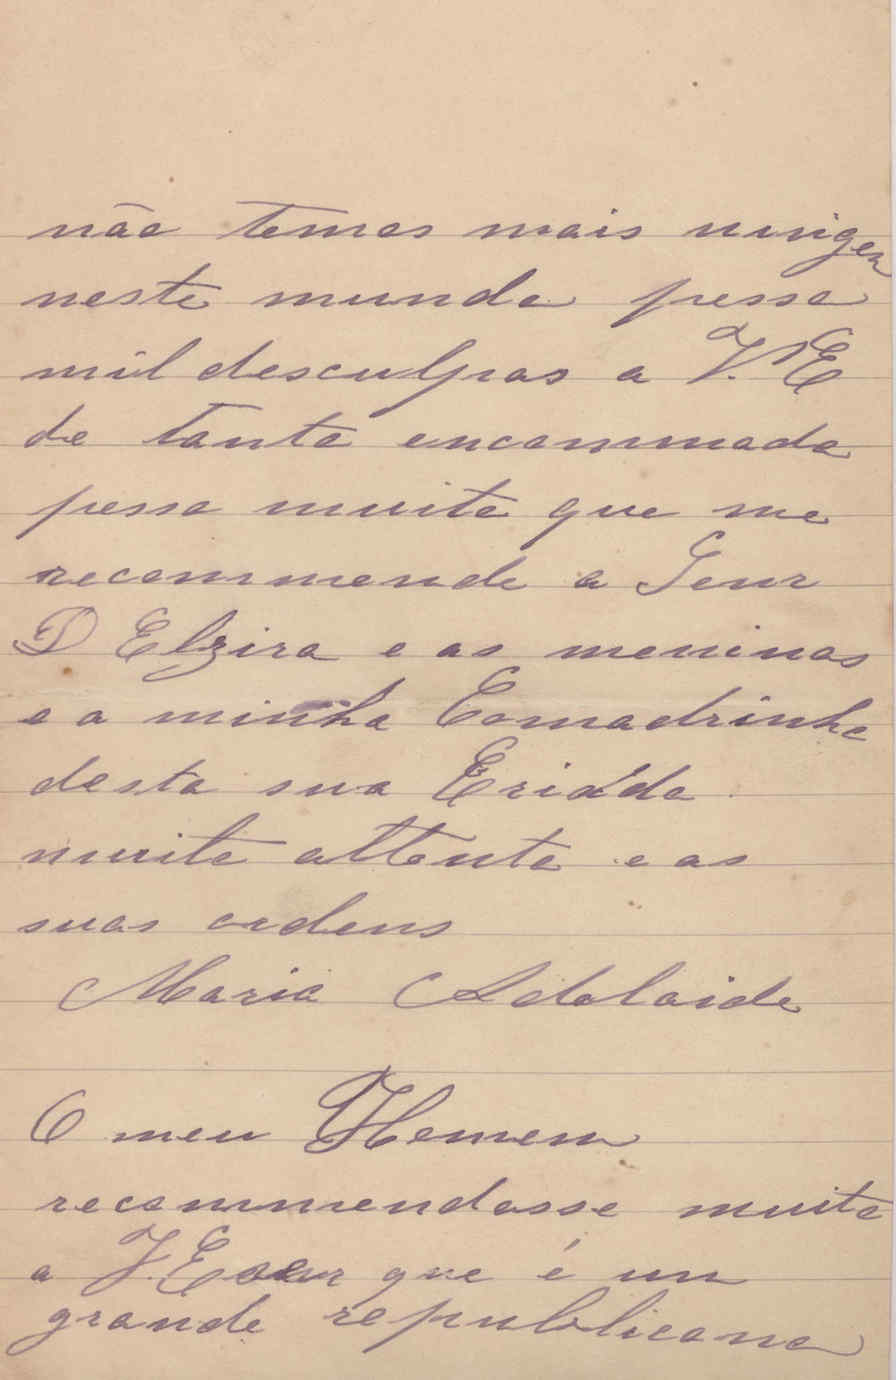 não temos mais ningem
neste mundo pesso
mil desculpas a V. E
de tanto encommodo
pesso muito que me
recommende a Senr
D Elzira e as meninas
e a minha Comadrinha
desta sua Criada
muito attenta e as
suas ordens
Maria Adelaide
O meu Homem
recommendasse muito
a V. E que é un
grande republicano